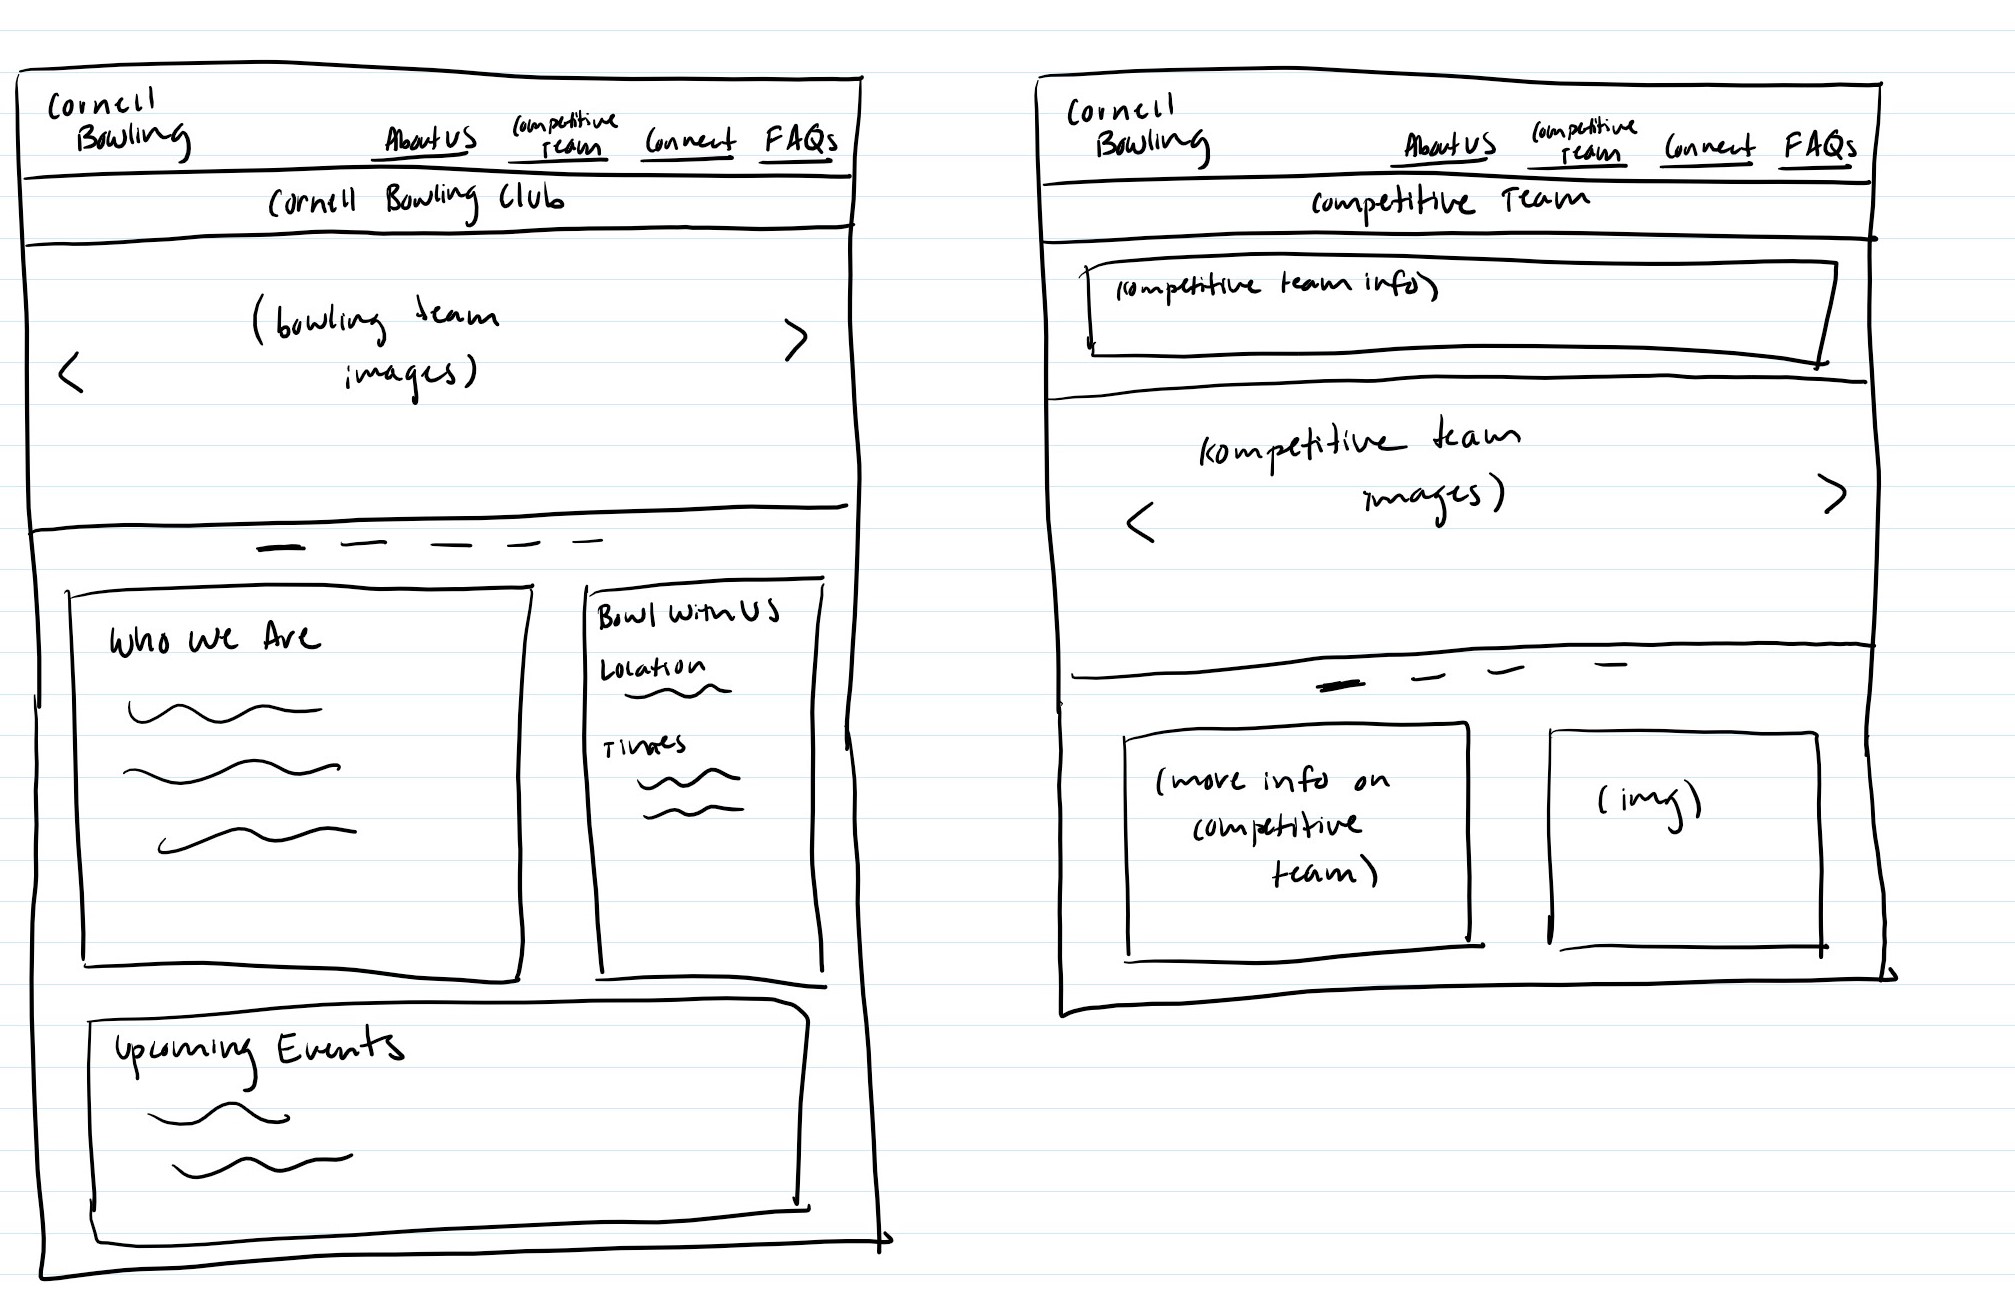 Cornell
Bowling
About US
Competitive
Team
Connect
FAQs
Cornell Bowling Club
(bowling team
images)
<
>
Who We Are
Bowl With US
Location
Times
Upcoming Events
Cornell
Bowling
About US
Competitive
Team
Connect
FAQs
Competitive Team
(competitive team info)
(competitive team
images)
<
>
(more info on
competitive
team)
(img)